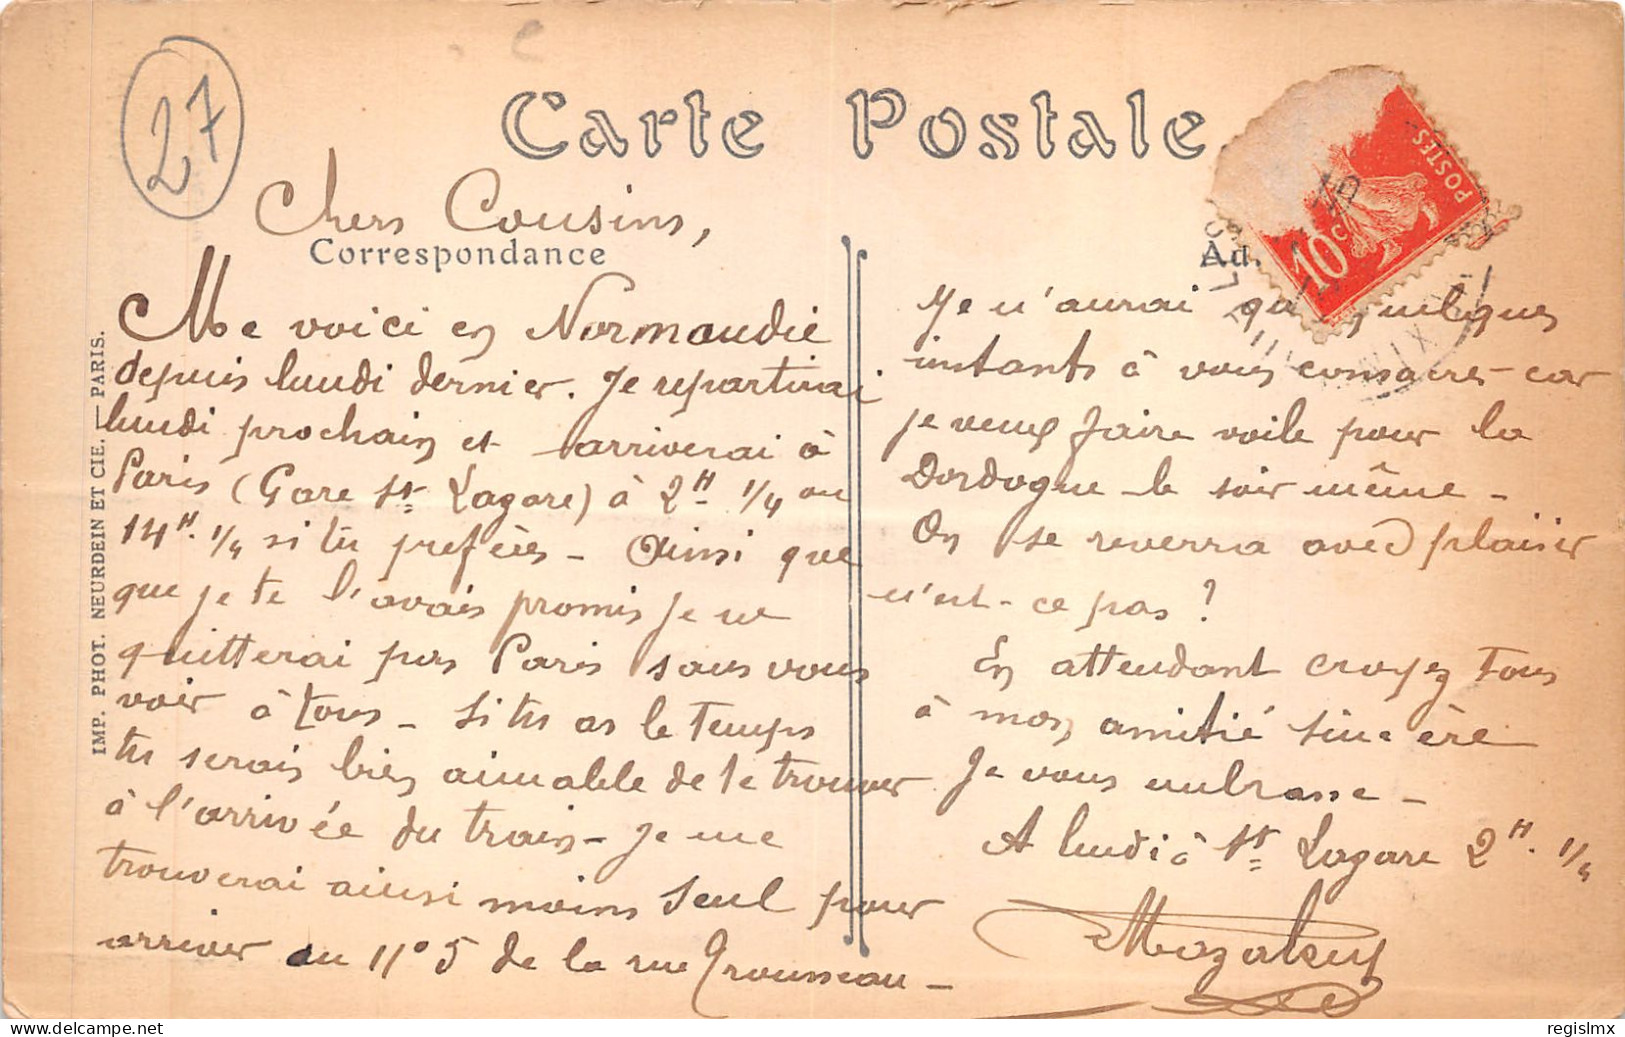 27
Carte Postale
Chers Cousins,
Correspondance
Me voici en Normandie
depuis lundi dernier. Je repartirai
lundi prochain et arriverai à
Paris (Gare St Lazare) à 2H 1/4 ou
14H. 1/4 si tu prefères - Ainsi que
que je te l'avais promis je ne
quitterai pas Paris sans vous
voir à tous - Si tu as le temps
tu serais bien aimable de te trouver
à l'arrivée du train - Je me
trouverai ainsi moins seul pour
arriver au no 5 de la rue Trousseau -
IMP. PHOT. NEURDEIN ET CIE. — PARIS.
Ad.
POSTES
10c
Je n'aurai que quelques
instants à vous consacrer - car
je veux faire voile pour la
Dordogne le soir même -
On se reverra avec plaisir
n'est-ce pas ?
En attendant croyez tous
à mon amitié sincère
Je vous embrasse -
A lundi à St Lazare 2H. 1/4
regislmx